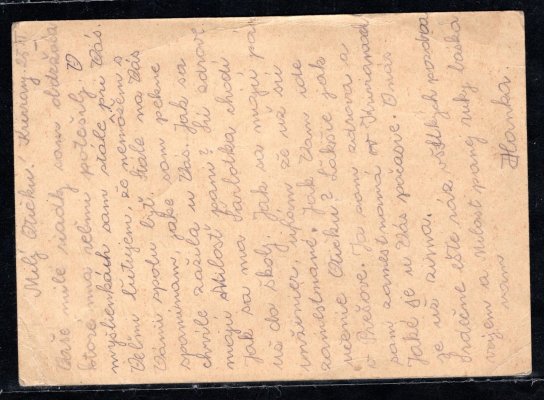 Milý Otičku! Kurany 25. II
Vaše milé riadky som obdržala
ktoré ma veľmi potešily. V
myslienkách som stále pri Vás.
Veľmi ľutujem, že nemôžem s
Vami spolu byť. Stále na Vás
spomínam, jaké som pekné
chvíle zažila u Vás. Jak sa
majú Milosť pani? Sú zdravé
Jak sa má Šarlotka, chodí
už do školy. Jak sa majú pán
inžinier, úfam že už sú
zamestnané. Jak Vám ide
učenie Otičku? Lákože jak
v Prešove. Ja som zdravá a
som zamestnaná v
Jaké je u Vás počasie. U nás
je už zima.
Srdečne ešte ráz veľkých pozdra
vujem a Milosť pánej ruky bozká
vam
Hanka